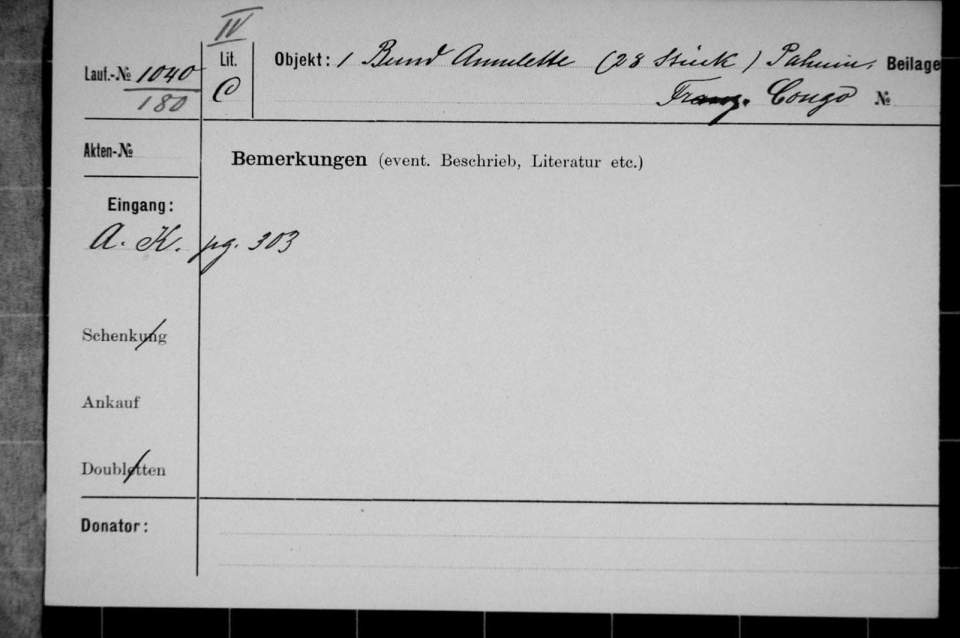 IV
Lauf.-№ 1040 Lit. Objekt: 1 Bund Amulette (28 Stück) Pahuin, Beilage
180 C Franz. Congo №
Akten-№
Bemerkungen (event. Beschrieb, Literatur etc.)
Eingang:
A. K. pg. 303
Schenkung
Ankauf
Doubletten
Donator: